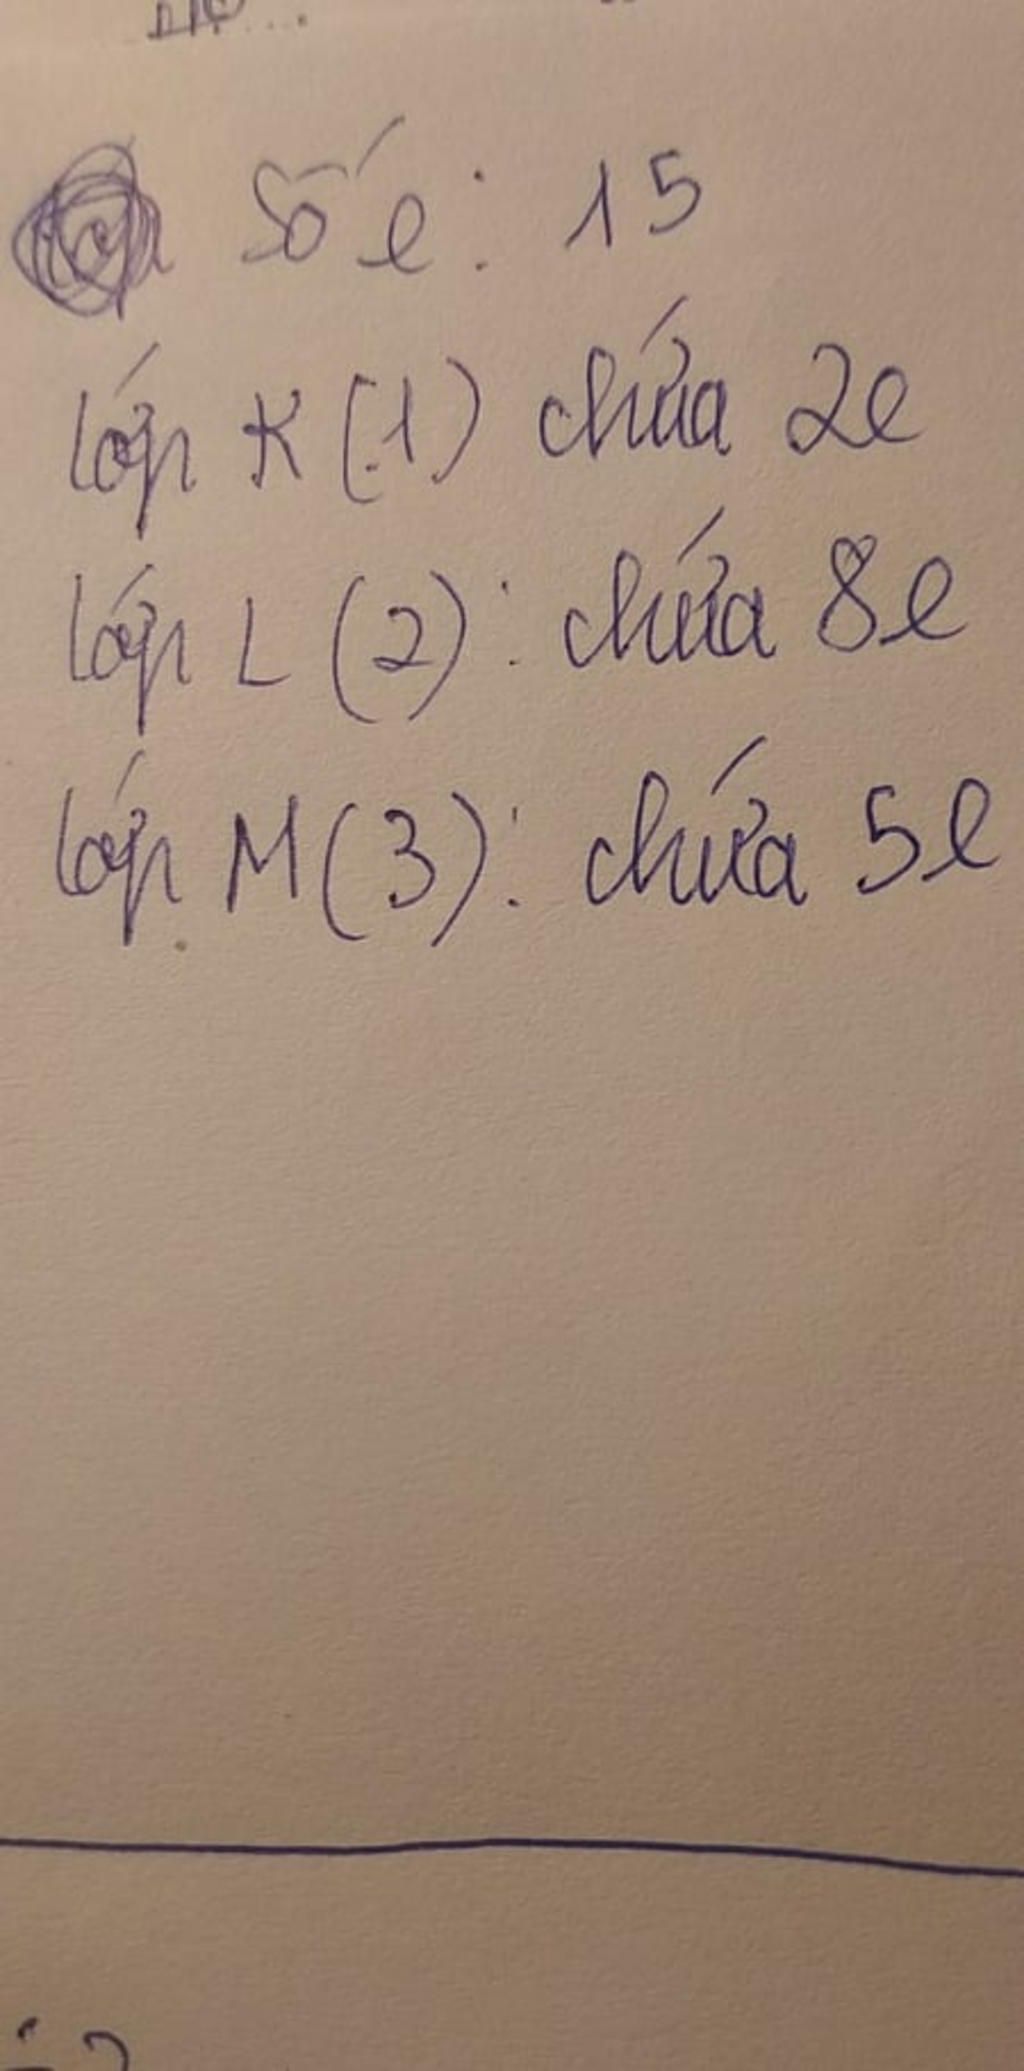 Số e: 15
lớp K (1) chứa 2e
lớp L (2): chứa 8e
lớp M (3): chứa 5e